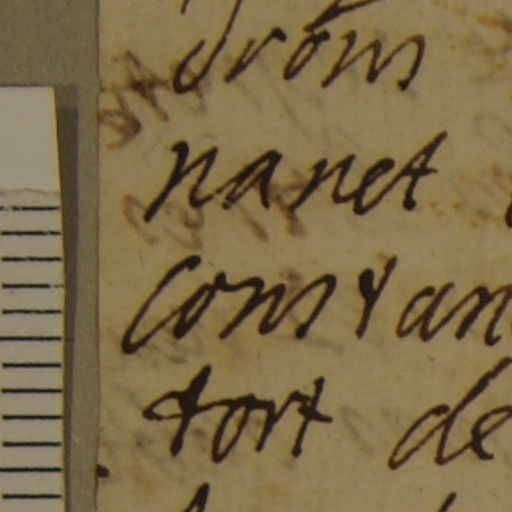 nanet
constan
tort de